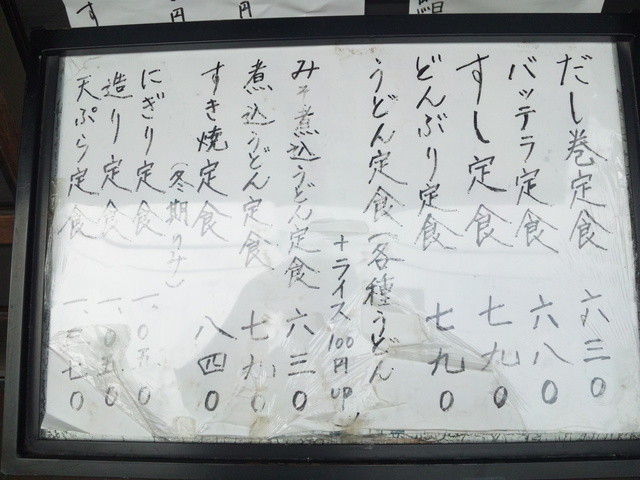 だし巻定食 六三〇
バッテラ定食 六八〇
すし定食 七九〇
どんぶり定食 七九〇
うどん定食(各種うどん
+ライス100円UP)
みそ煮込うどん定食 六三〇
煮込うどん定食 七九〇
すき焼定食 八四〇
(冬期のみ)
にぎり定食 一、〇五〇
造り定食 一、〇五〇
天ぷら定食 一、三七〇
す
円
円